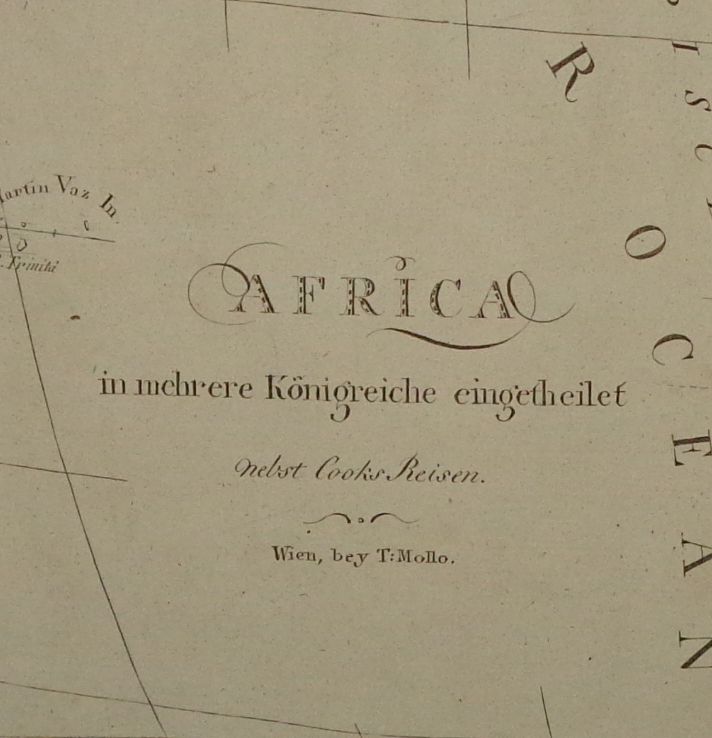 Martin Vaz In.
Trinità
AFRICA
in mehrere Königreiche eingetheilet
nebst Cooks Reisen.
Wien, bey T: Mollo.
R
OCEAN